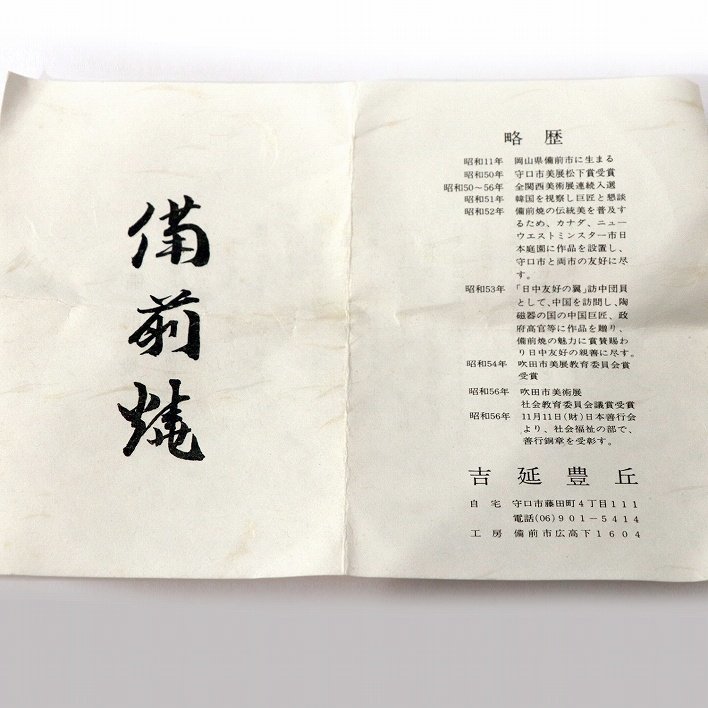 備前焼
略歴
昭和11年 岡山県備前市に生まる
昭和50年 守口市美展松下賞受賞
昭和50～56年 全関西美術展連続入選
昭和51年 韓国を視察し巨匠と懇談
昭和52年 備前焼の伝統美を普及す
るため、カナダ、ニュー
ウエストミンスター市日
本庭園に作品を設置し、
守口市と両市の友好に尽
す。
昭和53年 「日中友好の翼」訪中団員
として、中国を訪問し、陶
磁器の国の中国巨匠、政
府高官等に作品を贈り、
備前焼の魅力に賞賛賜わ
り日中友好の親善に尽す。
昭和54年 吹田市美展教育委員会賞
受賞
昭和56年 吹田市美術展
社会教育委員会議賞受賞
昭和56年 11月11日(財)日本善行会
より、社会福祉の部で、
善行銅章を受彰す。
吉延豊丘
自宅 守口市藤田町4丁目111
電話(06)901－5414
工房 備前市広高下1604